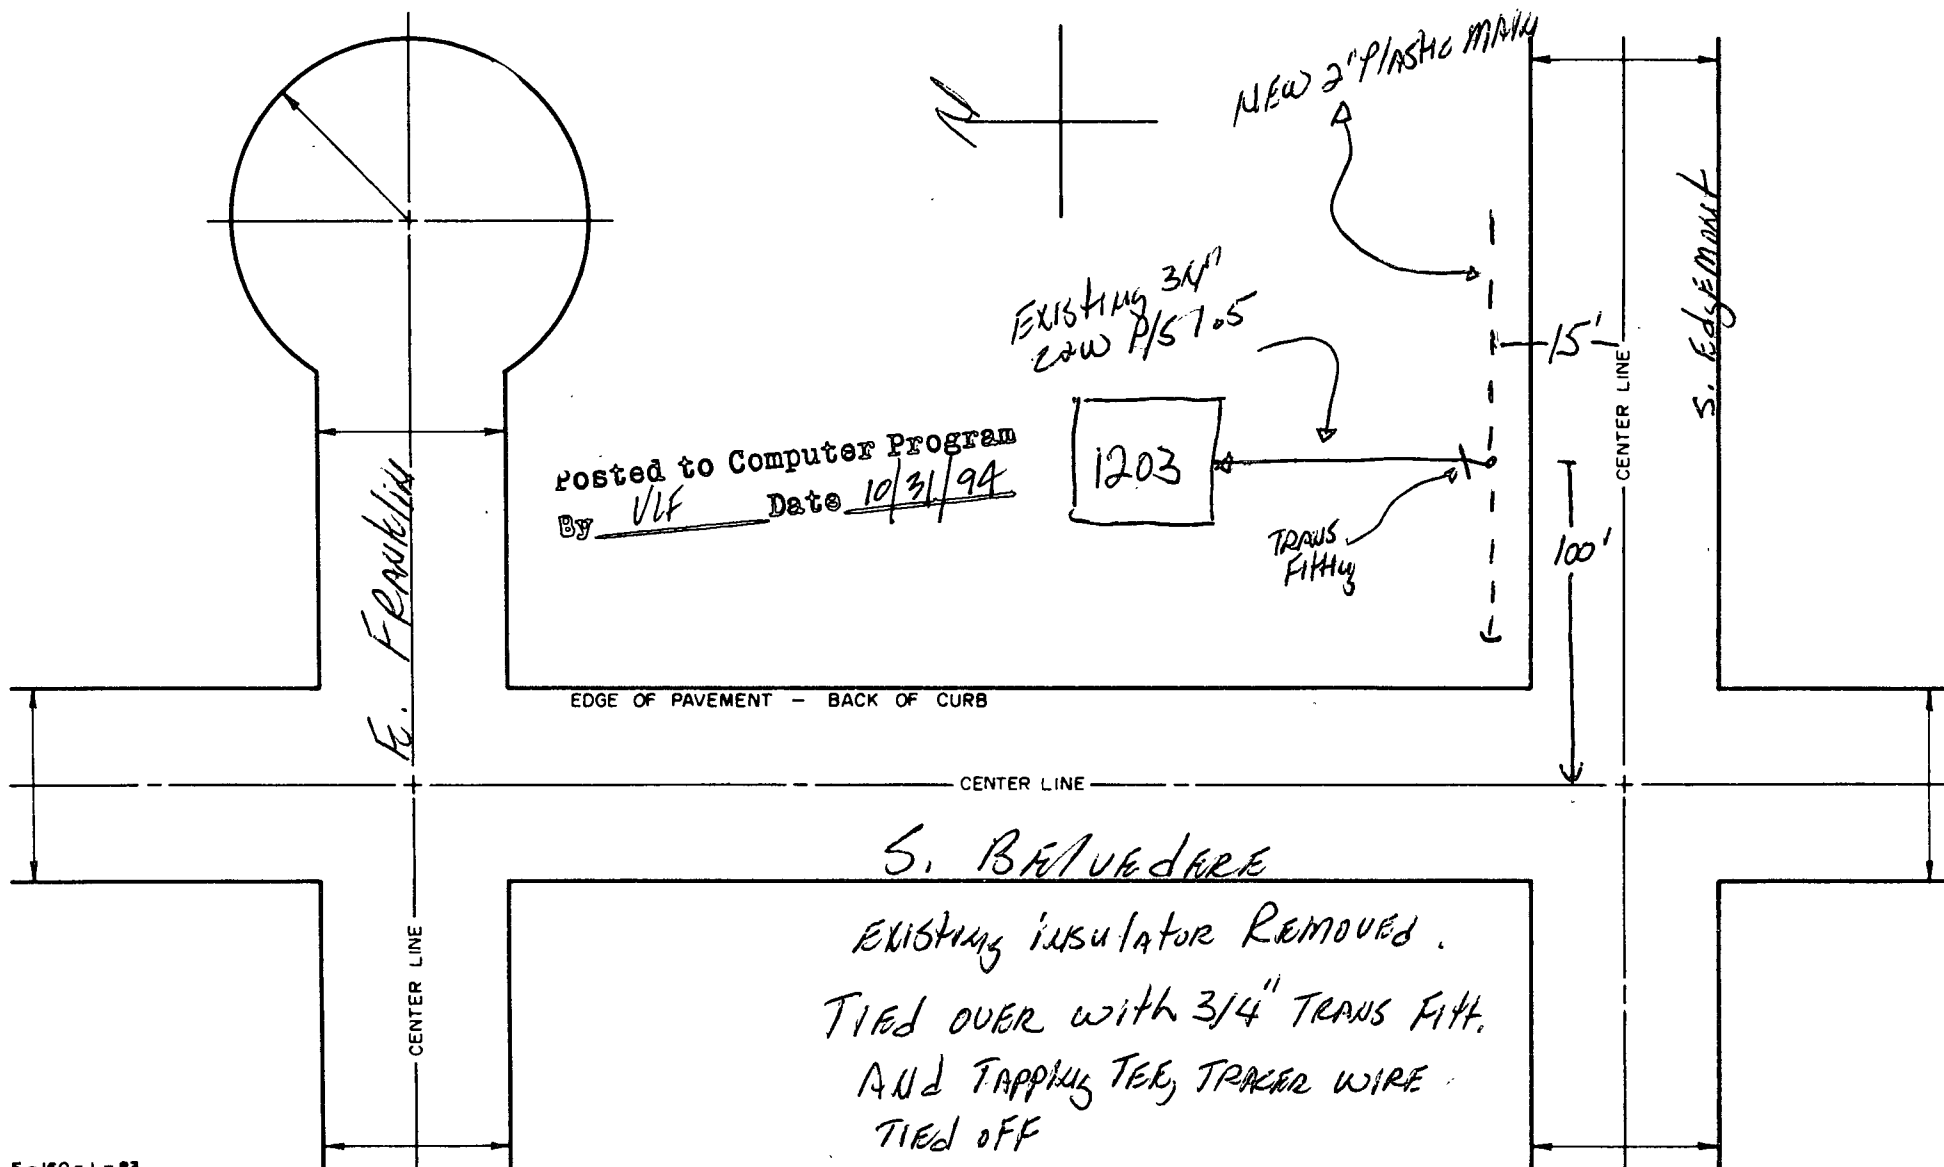 N
NEW 2" Plastic MAIN
S. Edgemont
Existing 3/4"
P/S
15'
CENTER LINE
Posted to Computer Program
By VLF Date 10/31/94
1203
TRANS
Fitting
100'
E. FRANKLIN
EDGE OF PAVEMENT – BACK OF CURB
CENTER LINE
S. BElVEdERE
CENTER LINE
Existing insulator Removed.
Tied over with 3/4" TRANS Fitt.
And Tapping Tee, TRACER WIRE
Tied off